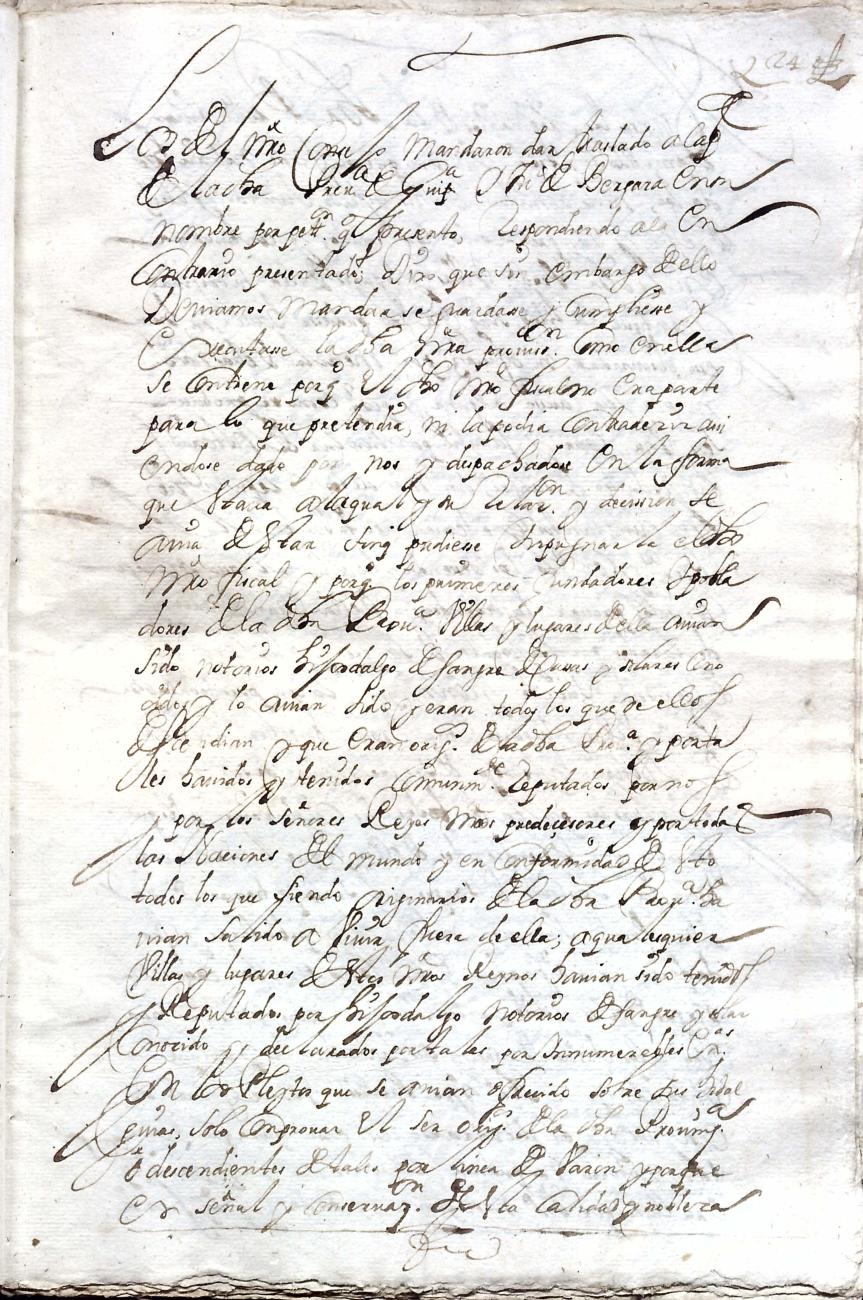 224
Los del nro Conssº mandaron dar traslado a la pte
de la dha Provª de Guipª Y Juº de Bergara en su
nombre por pettⁿ q presento, Respondiendo a la en
contrario presentada; Dixo que sin embargo de ello
Deviamos mandar se guardasse y cumpliesse y
Executasse la dha nra provisⁿ. como en ella
se contiene porq el dho nro fiscal no era parte
para lo que pretendia, ni la podia contradezir avi
endose dado por nos y despachadose en la forma
que estava a la qual y su relazⁿ. y decission se
avia de estar sin q pudiesse impugnarla el dho
nro fiscal y porq los primeros fundadores y pobla
dores de la dha Provª. Villas y lugares de ella avian
sido notorios hijosdalgo de sangre de casas y solares cono
cidos y lo avian sido y eran todos los que de ellos
descendian y que eran orig.ˢ de la dha Provª. y por ta
les havidos y tenidos comunmᵗᵉ. reputados por nos
y por los señores Reyes nros predeçesores y por todas
las Naciones del mundo y en conformidad de esto
todos los que siendo originarios de la dha Provª. ha
vian salido a vivir fuera de ella; a qualesquier
Villas y lugares destos nros Reynos havian sido tenidos
y Reputados por hijosdalgo notorios de sangre y solar
conocido y declarados por tales por innumerables ex.ᵃˢ
en los Pleytos que se avian ofrecido sobre sus hidal
guias, solo con provar el ser orig.ˢ de la dha Provinçª.
ò descendientes de tales por linea de Varon y porque
en señal y conservazⁿ. de esta calidad y nobleza